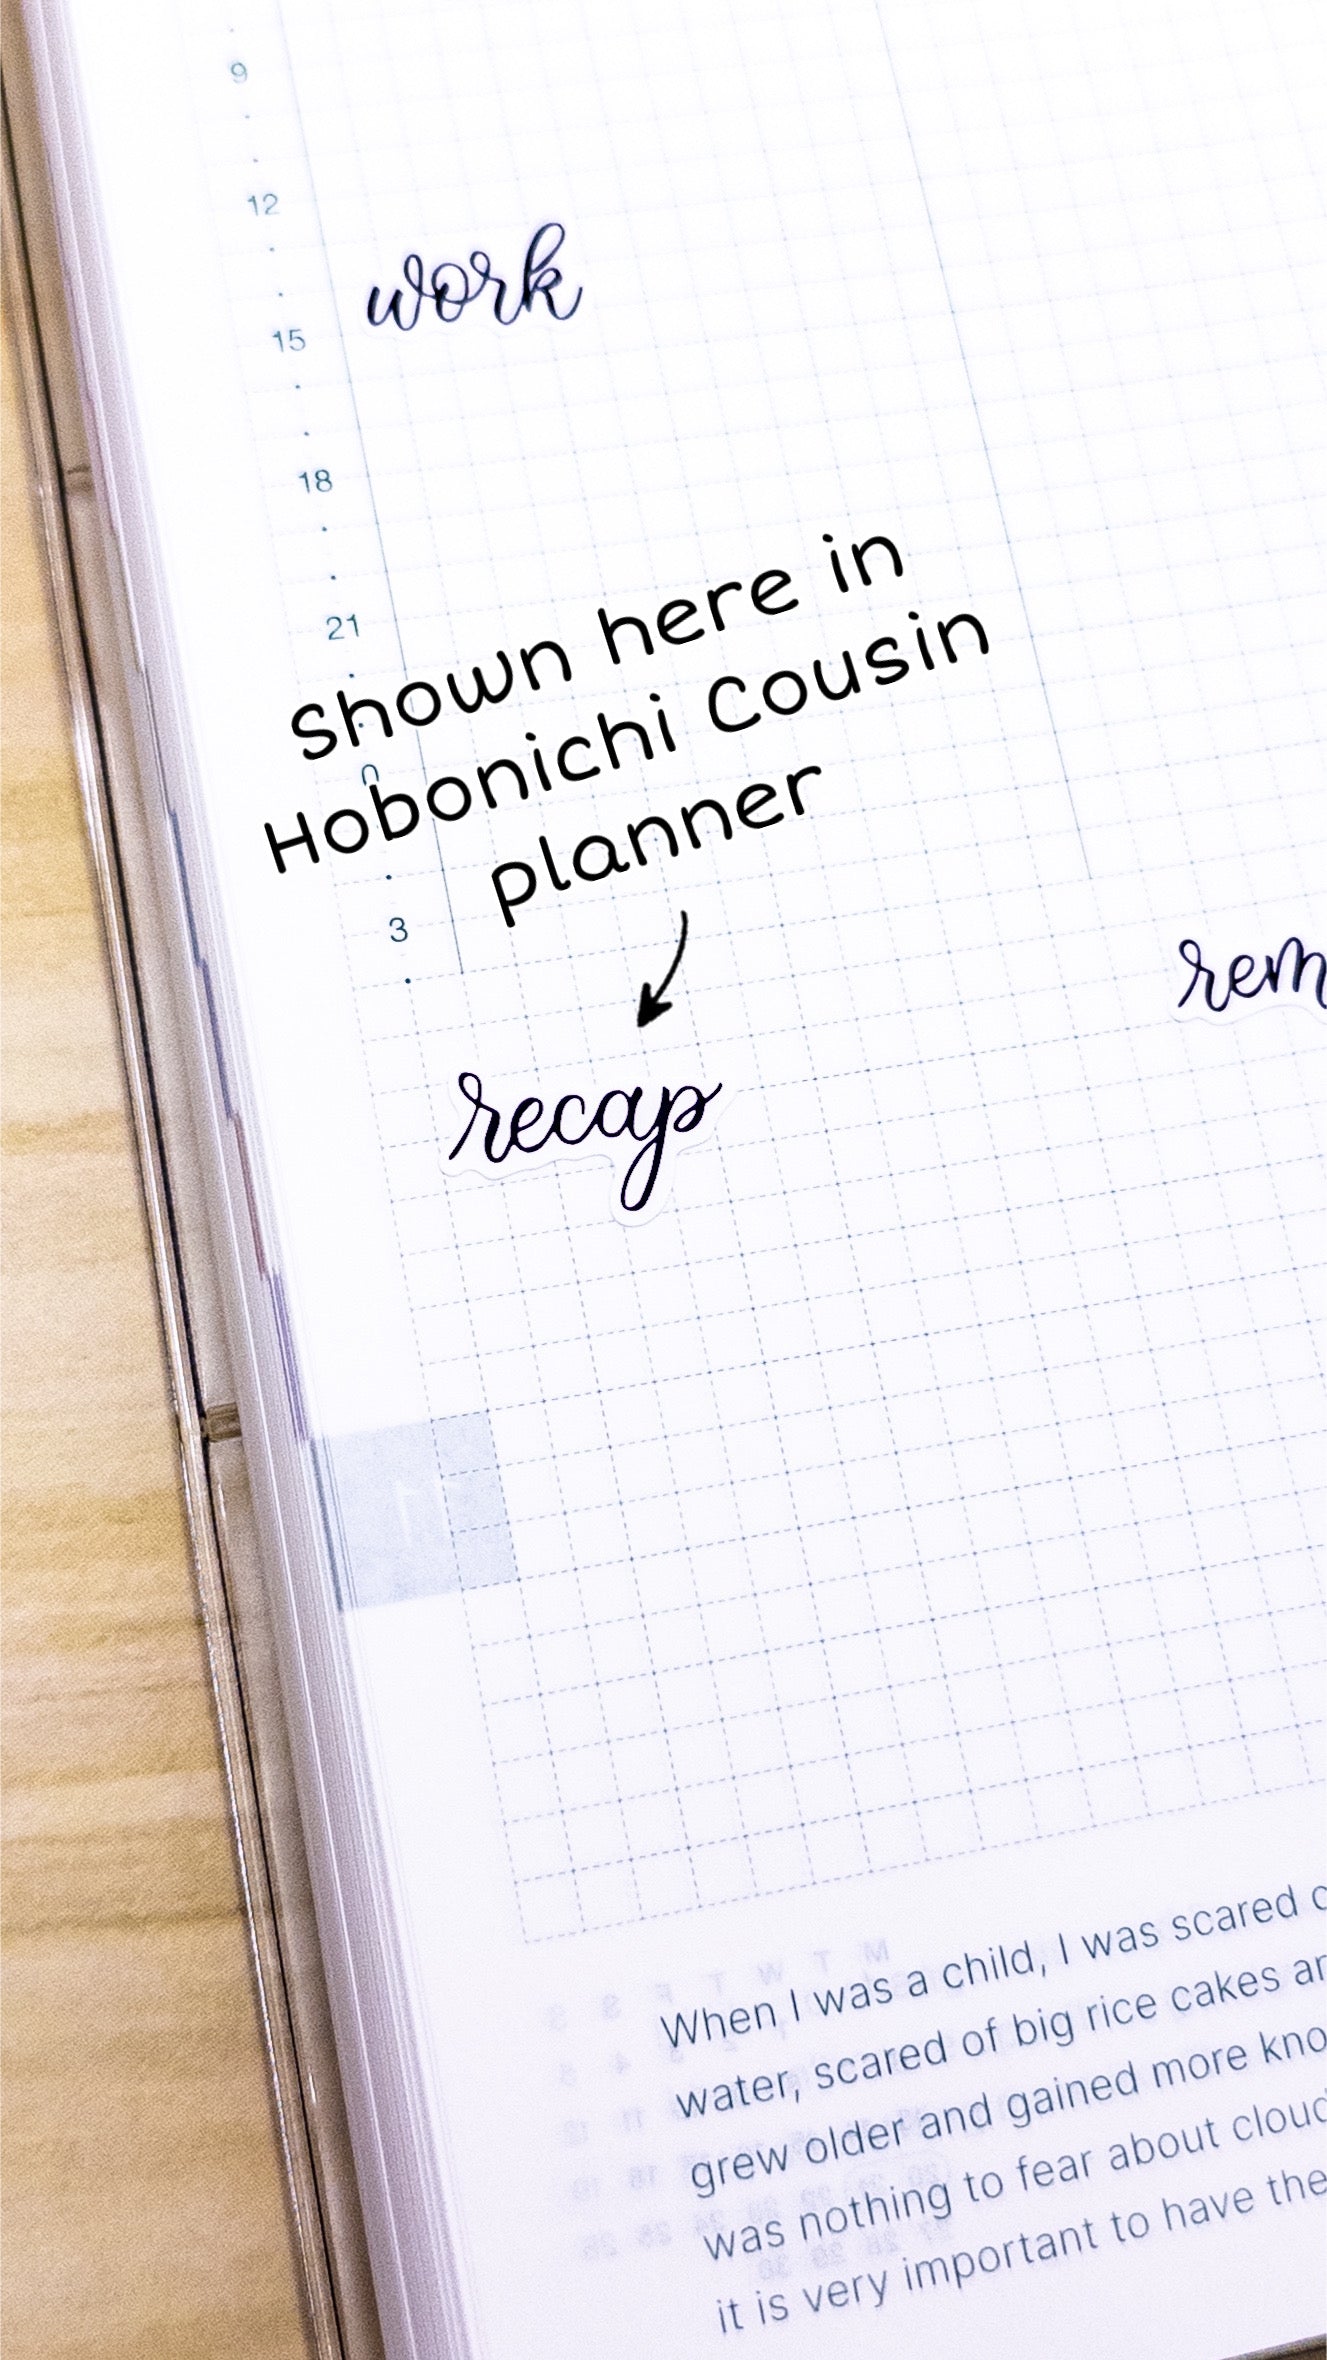 9
12
work
15
18
21
Shown here in
Hobonichi Cousin
planner
3
rem
recap
11
When I was a child, I was scared
water, scared of big rice cakes
grew older and gained more
was nothing to fear about
it is very important to have